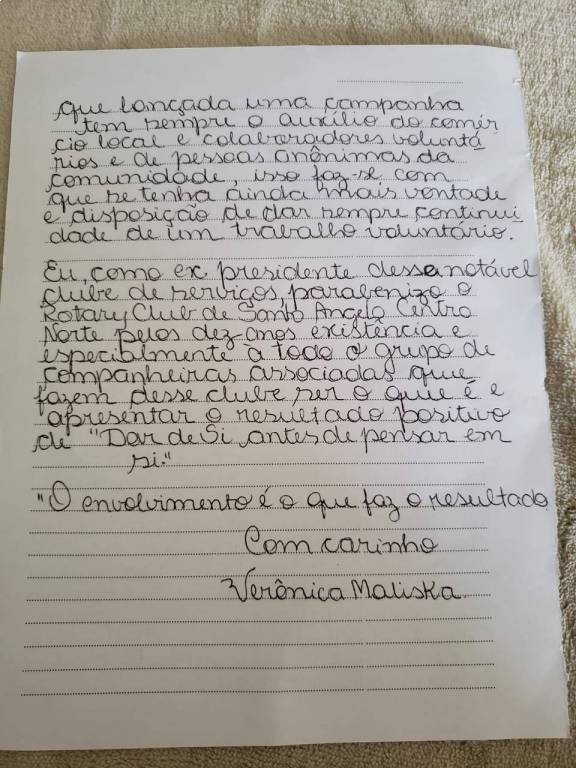 que lançada uma campanha
tem sempre o auxílio do comér
cio local e colaboradores voluntá
rios e de pessoas anônimas da
comunidade, isso faz-se com
que se tenha ainda mais vontade
e disposição de dar sempre continui
dade de um trabalho voluntário.
Eu, como ex presidente dessa notável
clube de serviços, parabenizo o
Rotary Club de Santo Ângelo Centro
Norte pelos dez anos existência e
especialmente à todo o grupo de
companheiras associadas que
fazem desse clube ser o que é e
apresentar o resultado positivo
de "Dar de Si, antes de pensar em
si."
"O envolvimento é o que faz o resultado
Com carinho
Verônica Maliska.